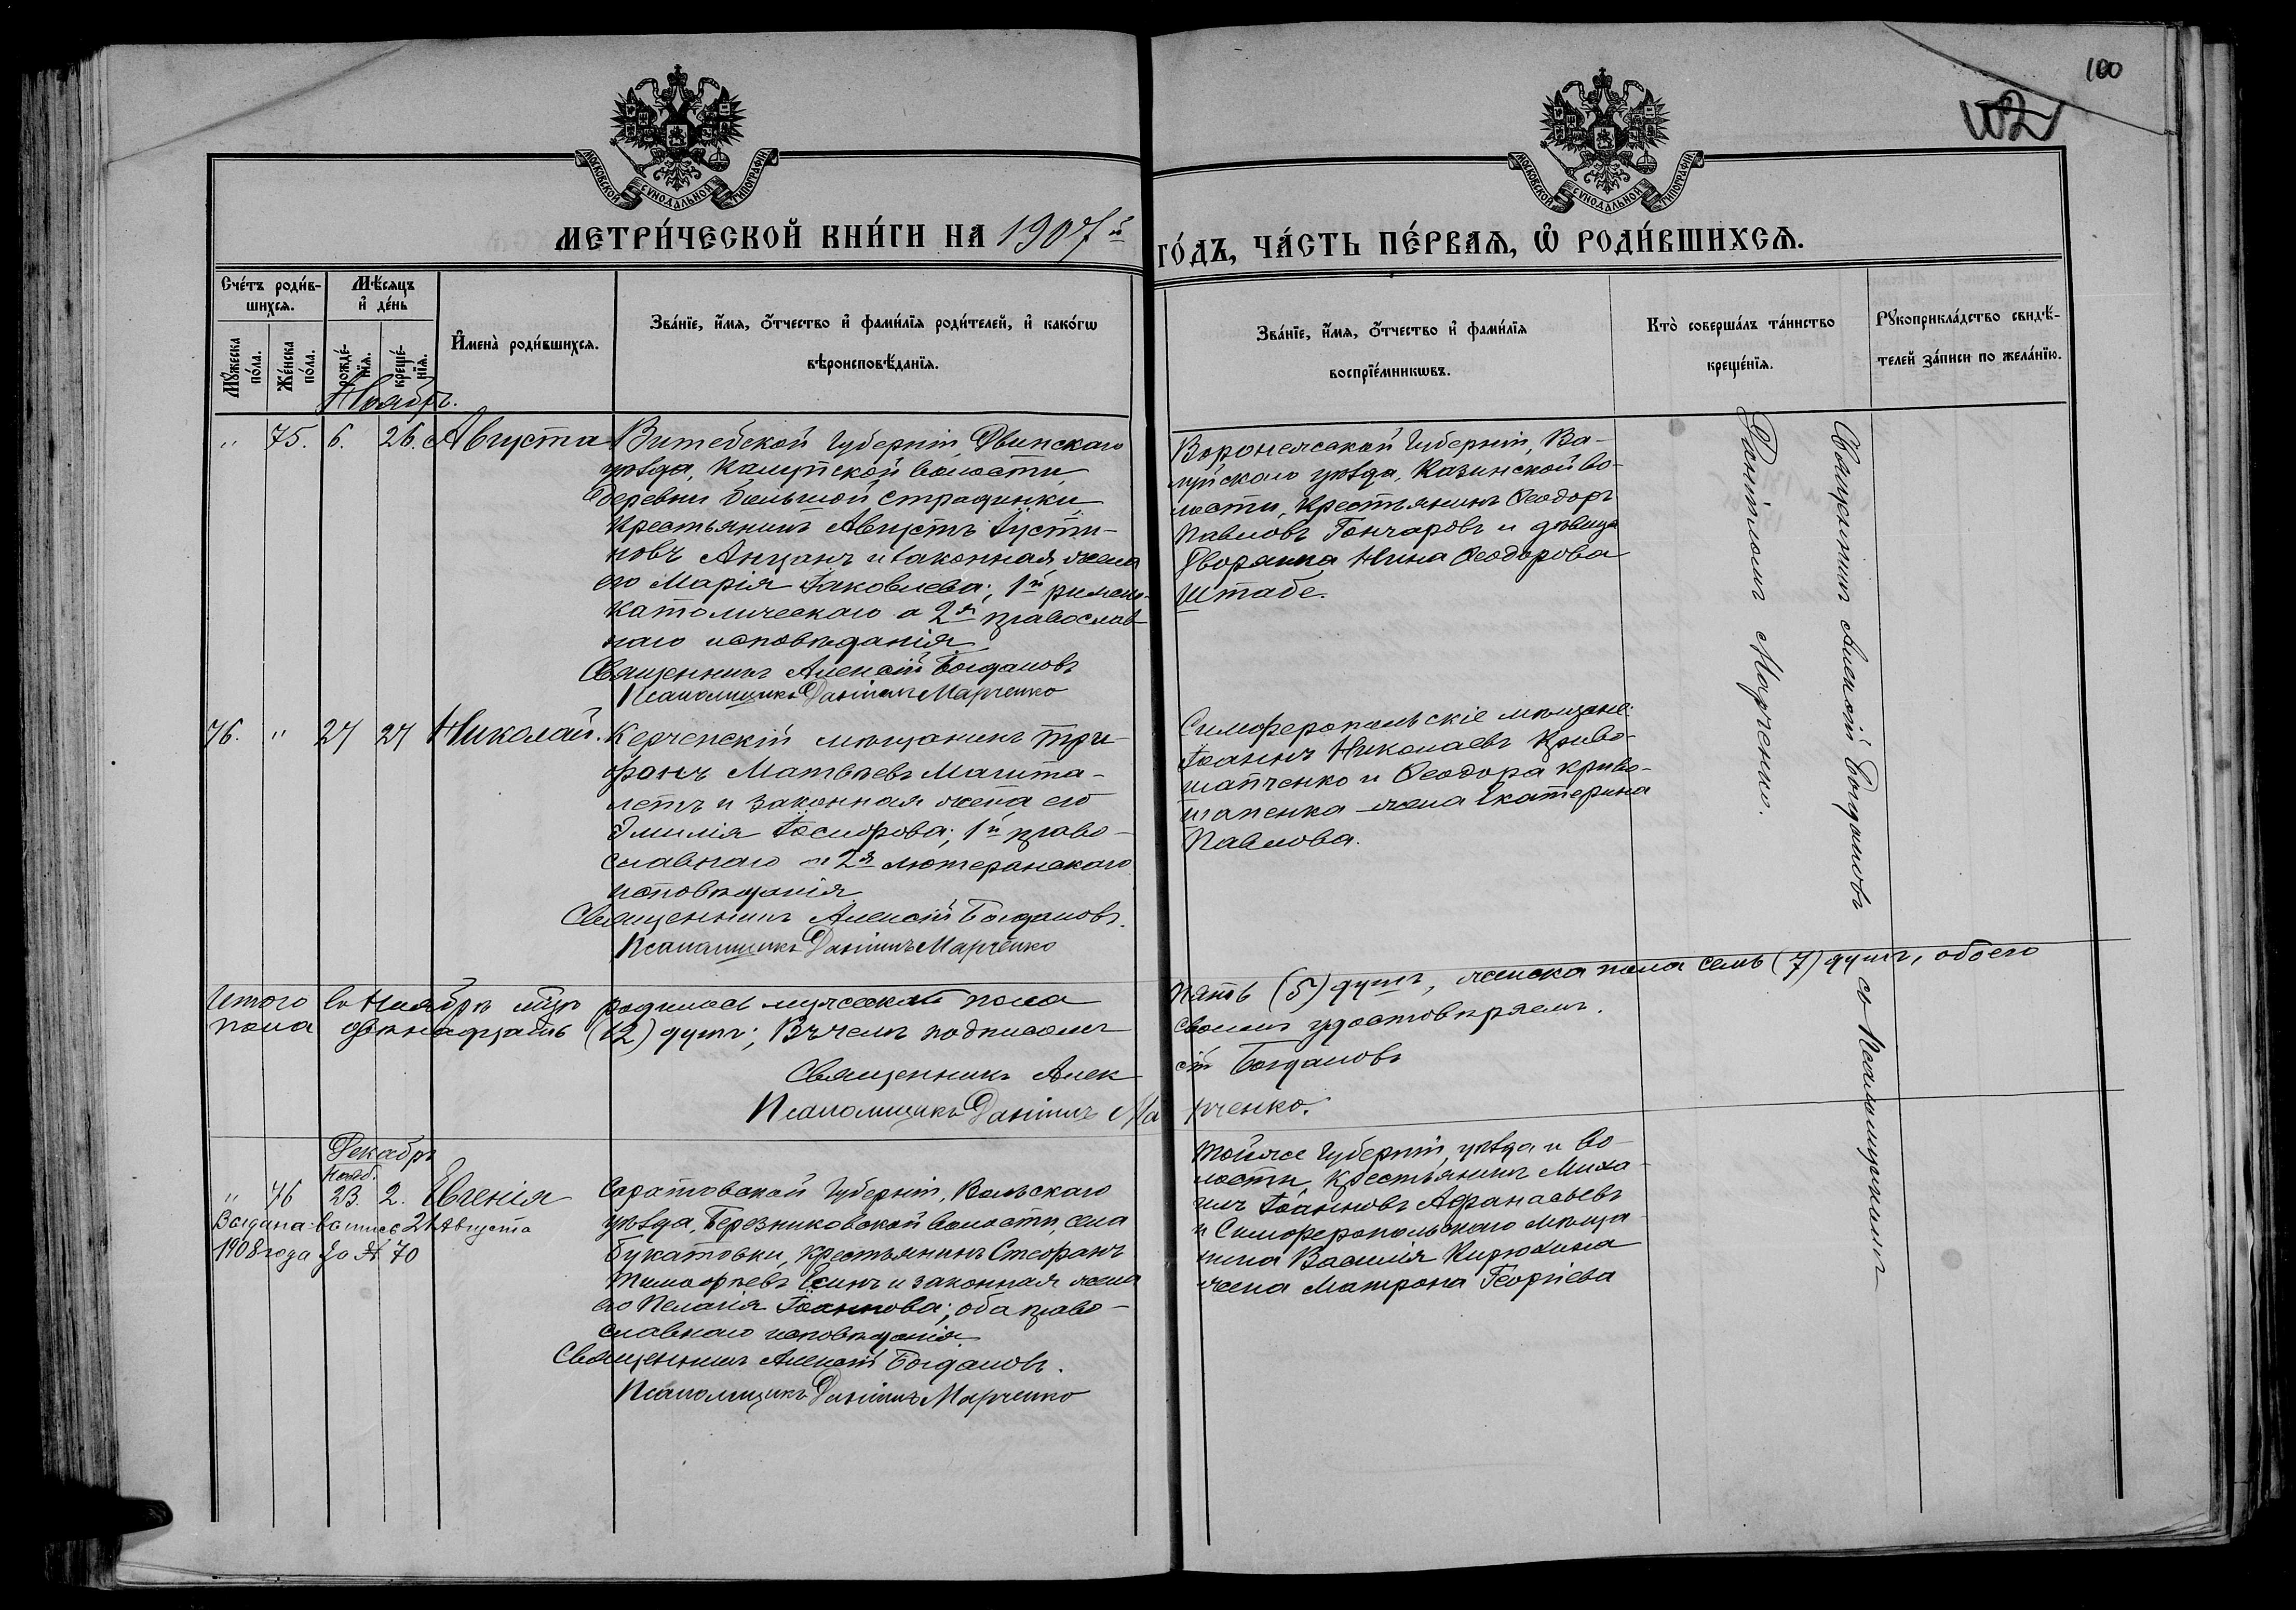 100
102
МОСКОВСКОЙ СѴНОДАЛЬНОЙ ТИПОГРАФІИ
МОСКОВСКОЙ СѴНОДАЛЬНОЙ ТИПОГРАФІИ
МЕТРИ́ЧЕСКОЙ КНИ́ГИ НА 1907й
ГО́ДЪ, ЧА́СТЬ ПЕ́РВАѦ, Ѡ҆ РОДИ́ВШИХСѦ.
Сче́тъ роди́в-
шихсѧ.
Мѣ́сѧцъ
и҆ де́нь
Мꙋ́жеска по́ла.
Же́нска по́ла.
рожде́-
нїѧ.
креще́-
нїѧ.
И҆мена̀ роди́вшихсѧ.
Зва́нїе, и҆́мѧ, ѻ҆́тчество и҆ фами́лїѧ роди́телей, и҆ како́гѡ
вѣроисповѣ́данїѧ.
Зва́нїе, и҆́мѧ, ѻ҆́тчество и҆ фами́лїѧ
воспрїе́мникѡвъ.
Кто̀ соверша́лъ та́инство
креще́нїѧ.
Рꙋкоприкла́дство свидѣ́-
телей за́писи по жела́нїю.
Ноябрь.
" 75. 6. 26. Августа
Витебской Губерніи, Двинскаго
уѣзда, Калупской волости,
деревни Большой Страдинки,
крестьянинъ Августъ Іусти-
новъ Анцанъ и законная жена
его Марія Іаковлева; 1й римско-
католическаго а 2я православ
наго исповѣданія
Священникъ Алексій Богдановъ
Псаломщикъ Даніилъ Марченко
Воронежской Губерніи, Ва-
луйскаго уѣзда, Казинской во-
лости, крестьянинъ Ѳеодоръ
Павловъ Гончаровъ и дѣвица
Дворянка Нина Ѳеодорова
Штабе.
76. " 27 27 Николай.
Керченскій мѣщанинъ Три-
фонъ Матвѣевъ Магита-
летъ и законная жена его
Эмилія Іосифова; 1й право-
славнаго и 2я лютеранскаго
исповѣданія
Священникъ Алексій Богдановъ.
Псаломщикъ Даніилъ Марченко
Симферопольскіе мѣщане:
Іоаннъ Николаевъ Криво-
шапченко и Ѳеодора Криво-
шапенка жена Екатерина
Павлова.
Священникъ Алексій Богдановъ съ Псаломщикомъ
Даніиломъ Марченко.
Итого въ Ноябрѣ мцѣ родилось мужескаго пола пять (5) душъ, женска пола семь (7) душъ, обоего
пола двѣнадцать (12) душъ; Въ чемъ подписомъ своимъ удостовѣряемъ.
Священникъ Алексій Богдановъ
Псаломщикъ Даніилъ Марченко.
Декабрь
Нояб.
" 76 23. 2. Евгенія
Выдана выпись 21 Августа
1908 года за № 70
Саратовской Губерніи, Вольскаго
уѣзда, Березниковской волости, села
Букатовки, крестьянинъ Стефанъ
Тимофѣевъ Есинъ и законная жена
его Пелагія Іоаннова; оба право-
славнаго исповѣданія
Священникъ Алексій Богдановъ.
Псаломщикъ Даніилъ Марченко
Тойже Губерніи, уѣзда и во-
лости, крестьянинъ Миха-
илъ Іоанновъ Афанасьевъ
и Симферопольскаго мѣща-
нина Василія Кирюхина
жена Матрона Георгіева